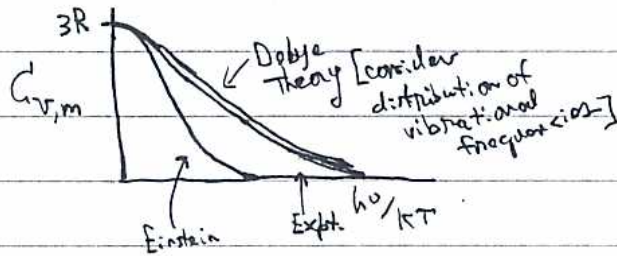 3R
Debye
Theory [consider
distribution of
vibrational
frequencies]
Cv,m
Einstein
Expt.
hν/kT